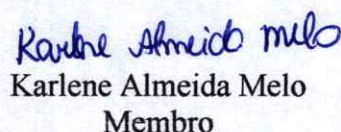 Karlene Almeida Melo
Karlene Almeida Melo
Membro